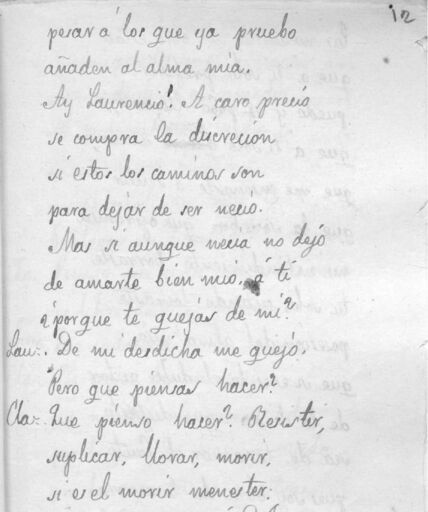 12
pesar á los que ya pruebo
añaden al alma mia.
Ay Laurencio! A caro precio
se compra la discrecion
si estos los caminos son
para dejar de ser necio.
Mas si aunque necia no dejó
de amarte bien mio, á ti
¿porque te quejas de mi?
Lau-. De mi desdicha me quejo.
Pero que piensas hacer?
Cla-. Que pienso hacer? Resister,
suplicar, llorar, morir,
si es el morir menester.